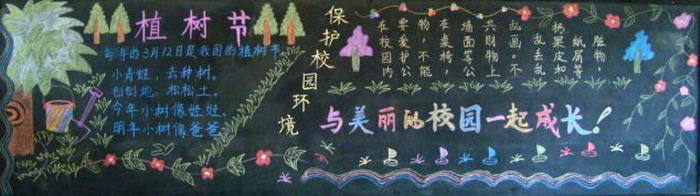 植树节
每年的3月12日是我国的植树节
小青蛙，去种树。
刨刨地，松松土。
今年小树像娃娃。
明年小树像爸爸。
保护校园环境
在校园内
要爱护公
物，不能
在桌椅，
墙面等公
共财物上
乱画。不
乱丢乱
扔果皮和
纸屑等
脏物，
与美丽的校园一起成长！